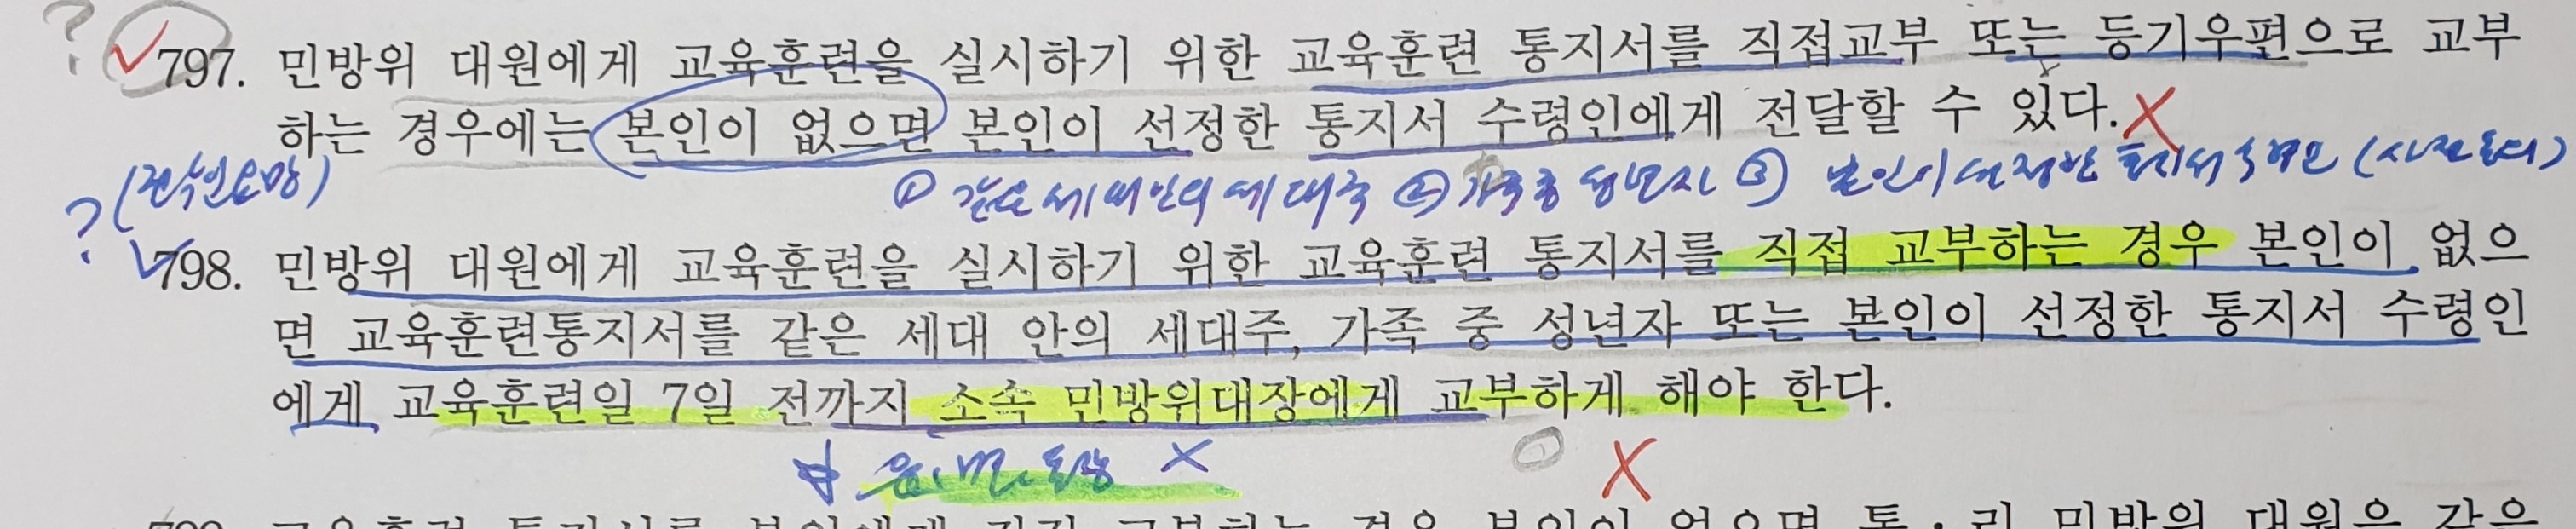 ? 797. 민방위 대원에게 교육훈련을 실시하기 위한 교육훈련 통지서를 직접교부 또는 등기우편으로 교부
하는 경우에는 본인이 없으면 본인이 선정한 통지서 수령인에게 전달할 수 있다. X
① 같은 세대안의 세대주 ② 가족중 성년자 ③ 본인이 선정한 통지서 수령인
? 798. 민방위 대원에게 교육훈련을 실시하기 위한 교육훈련 통지서를 직접 교부하는 경우 본인이 없으
면 교육훈련통지서를 같은 세대 안의 세대주, 가족 중 성년자 또는 본인이 선정한 통지서 수령인
에게 교육훈련일 7일 전까지 소속 민방위대장에게 교부하게 해야 한다.
읍.면.동장 X O X